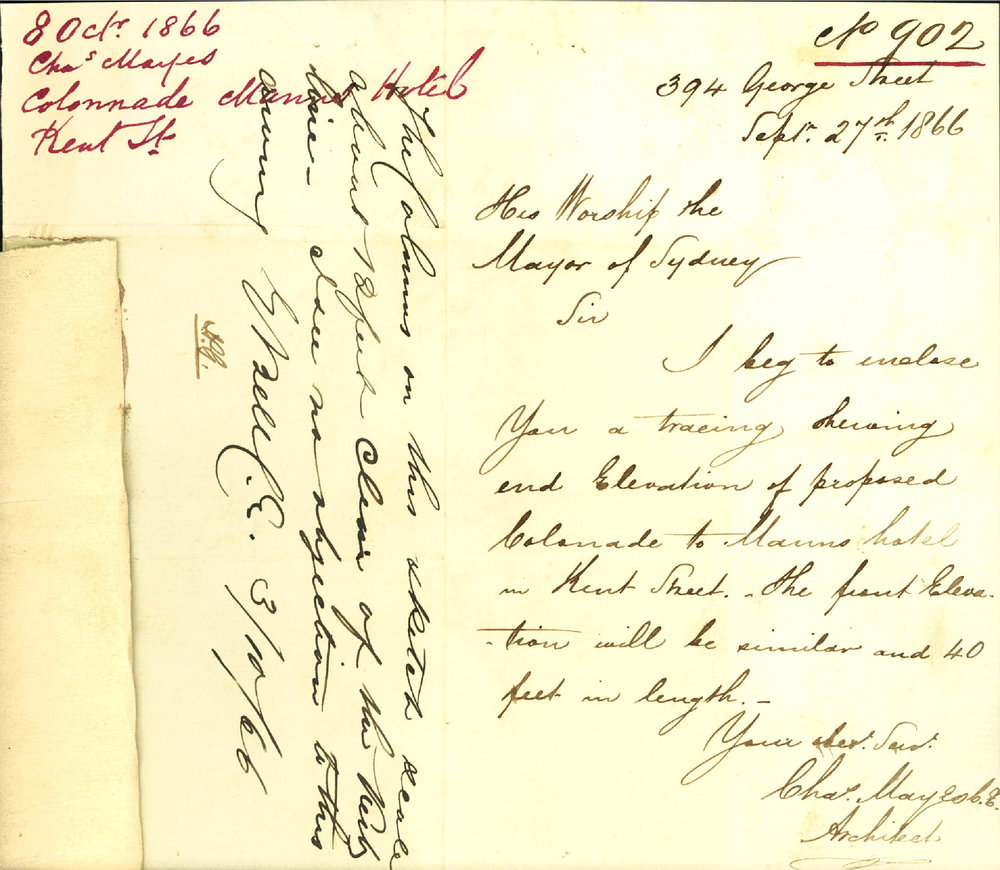 8 Octr. 1866
Chas Mayes
Colonnade Manns Hotel
Kent St
No 902
394 George Street
Septr. 27th 1866
His Worship the
Mayor of Sydney
Sir
I beg to enclose
You a tracing shewing
end Elevation of proposed
Colonade to Manns hotel
in Kent Street. - The front Eleva-
-tion will be similar and 40
feet in length. -
Your obt. Servt.
Chas. Mayes C.E.
Architect
The Columns on this sketch scale
about 12 feet clear of the kerb
line - I see no objection to this
being
E Bell C.E. 3/10/66